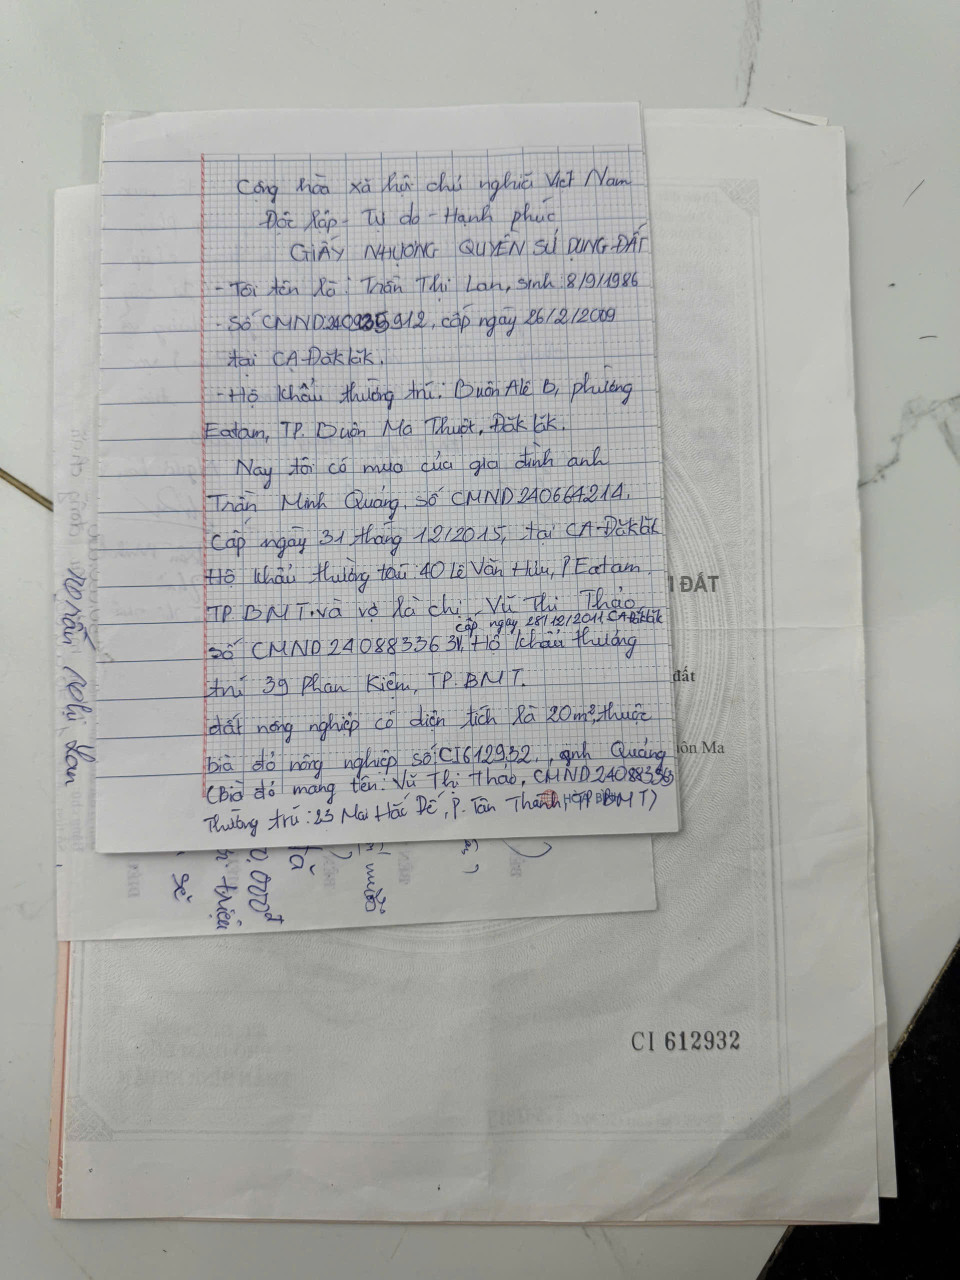 Cộng hòa xã hội chủ nghĩa Việt Nam
Độc lập - Tự do - Hạnh phúc
GIẤY NHƯỢNG QUYỀN SỬ DỤNG ĐẤT
- Tôi tên là: Trần Thị Lan, sinh 8/9/1986
- Số CMND 240935912, cấp ngày 26/2/2009
tại CA Đăklăk.
- Hộ khẩu thường trú: Buôn Alê B, phường
Eatam, TP. Buôn Ma Thuột, Đăklăk.
Nay tôi có mua của gia đình anh
Trần Minh Quảng, số CMND 240664214.
Cấp ngày 31 tháng 12/2015, tại CA Đăklăk
Hộ khẩu thường trú: 40 Lê Văn Hưu, P Eatam.
TP. BMT. và vợ là chị Vũ Thị Thảo
cấp ngày 28/12/2011 CA Đăklăk
số CMND 240883363, Hộ khẩu thường
trú 39 Phan Kiệm, TP. BMT.
đất nông nghiệp có diện tích là 20m², thuộc
bìa đỏ nông nghiệp số CI612932, anh Quảng
(Bìa đỏ mang tên: Vũ Thị Thảo, CMND 240883363
Thường trú: 23 Mai Hắc Đế, P. Tân Thành, TP BMT)
I ĐẤT
đất
uôn Ma
Trần Thị Lan
số
triệu
0.000đ
CI 612932